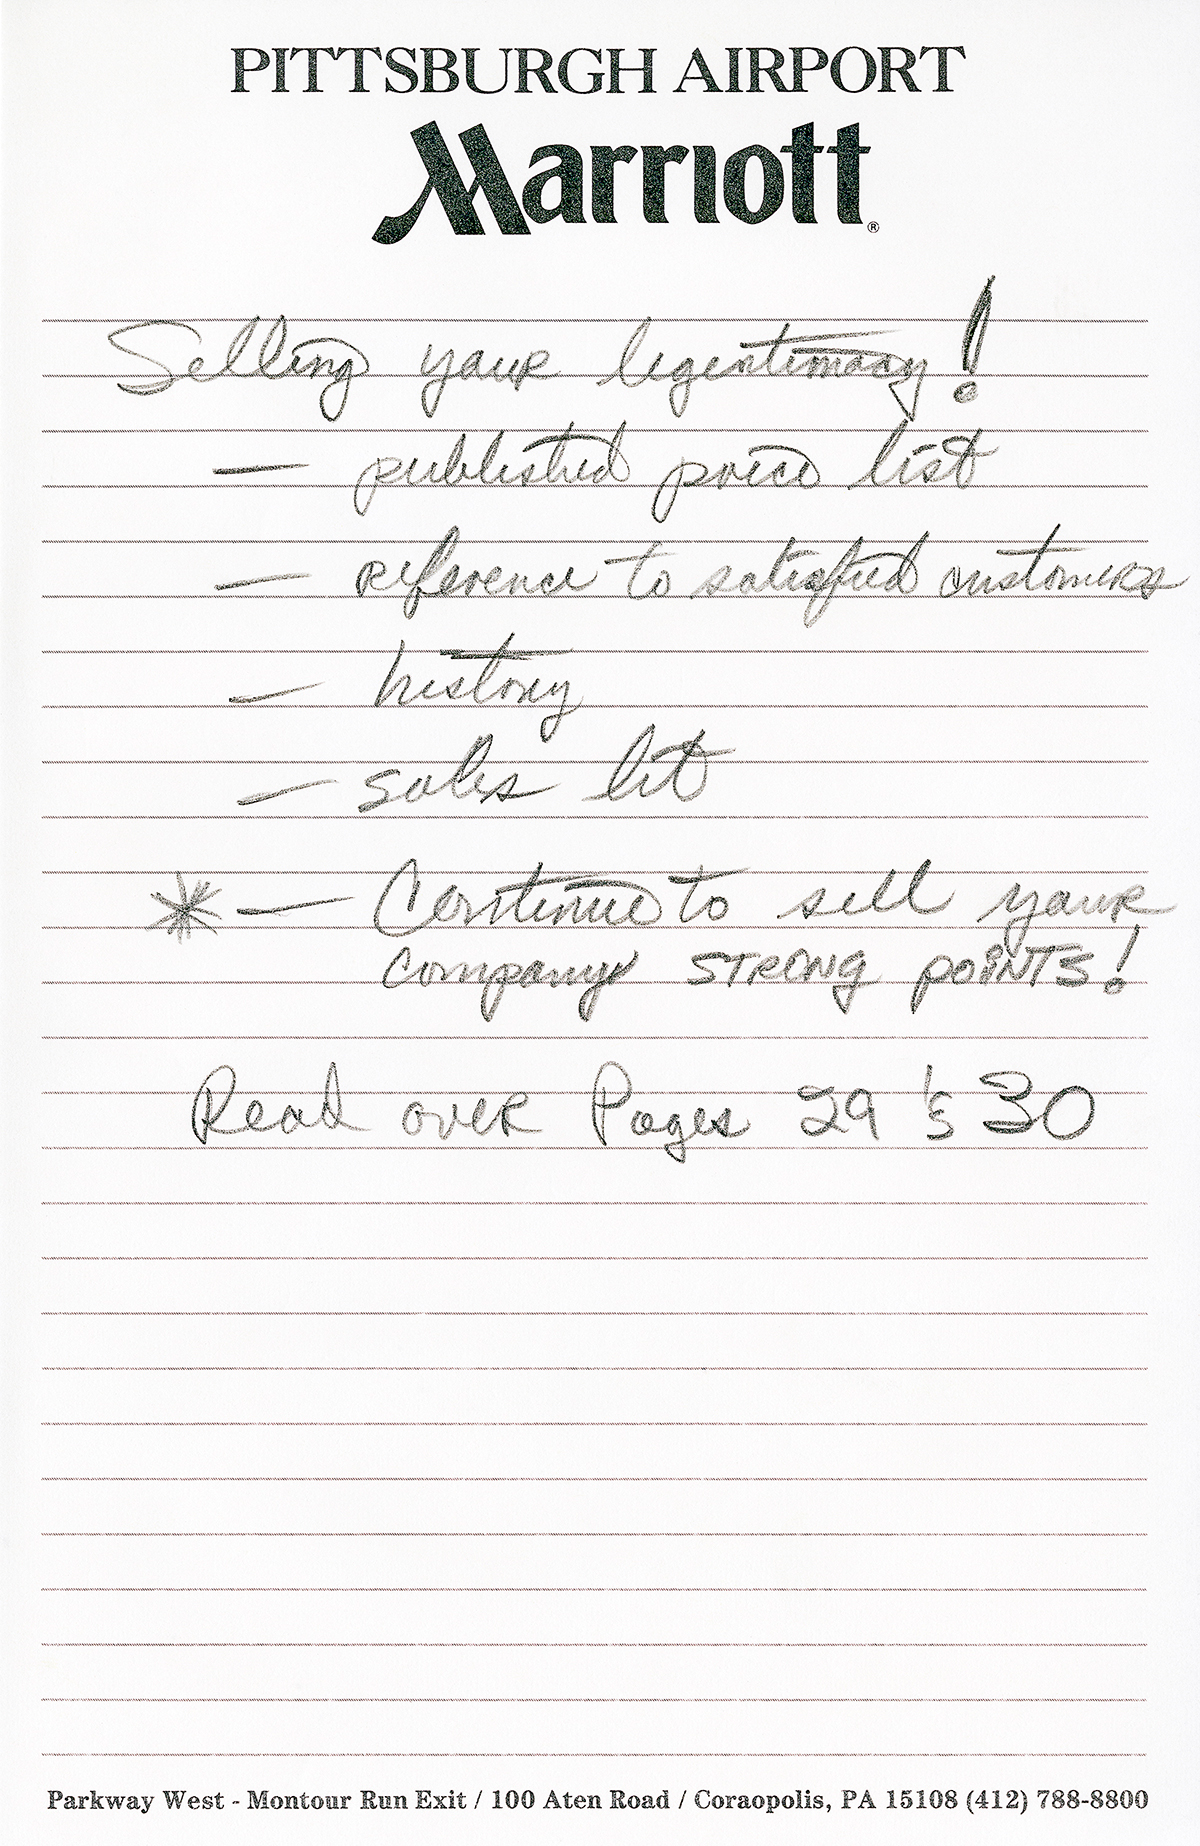 PITTSBURGH AIRPORT
Marriott®
Selling your legentimacy!
— published price list
— reference to satisfied customers
— history
— sales lit
* — Continue to sell your
company STRONG POINTS!
Read over Pages 29 & 30
Parkway West - Montour Run Exit / 100 Aten Road / Coraopolis, PA 15108 (412) 788-8800